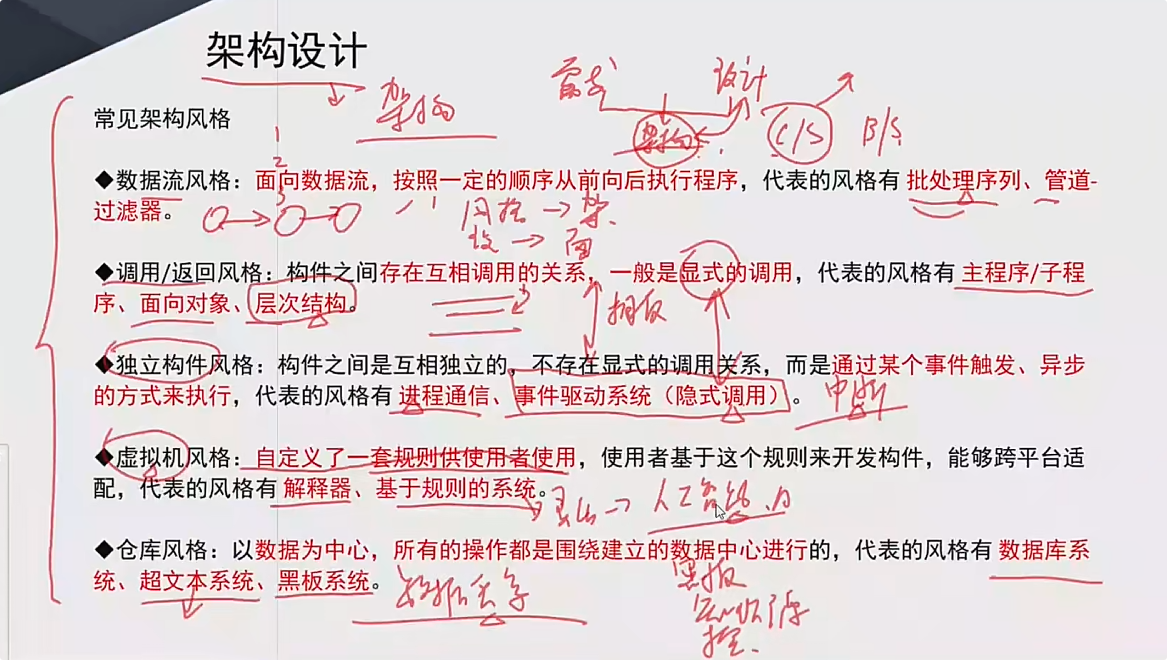 架构设计
架构
需求
设计
架构
C/S
B/S
常见架构风格
1
2
3
◆数据流风格：面向数据流，按照一定的顺序从前向后执行程序，代表的风格有 批处理序列、管道-
过滤器。
风格 → 架
◆调用/返回风格：构件之间存在互相调用的关系，一般是显式的调用，代表的风格有 主程序/子程
序、面向对象、层次结构。
◆独立构件风格：构件之间是互相独立的，不存在显式的调用关系，而是通过某个事件触发、异步
的方式来执行，代表的风格有 进程通信、事件驱动系统（隐式调用）。
中断
◆虚拟机风格：自定义了一套规则供使用者使用，使用者基于这个规则来开发构件，能够跨平台适
配，代表的风格有 解释器、基于规则的系统。
人工智能
◆仓库风格：以数据为中心，所有的操作都是围绕建立的数据中心进行的，代表的风格有 数据库系
统、超文本系统、黑板系统。
数据共享
黑板
知识源
控